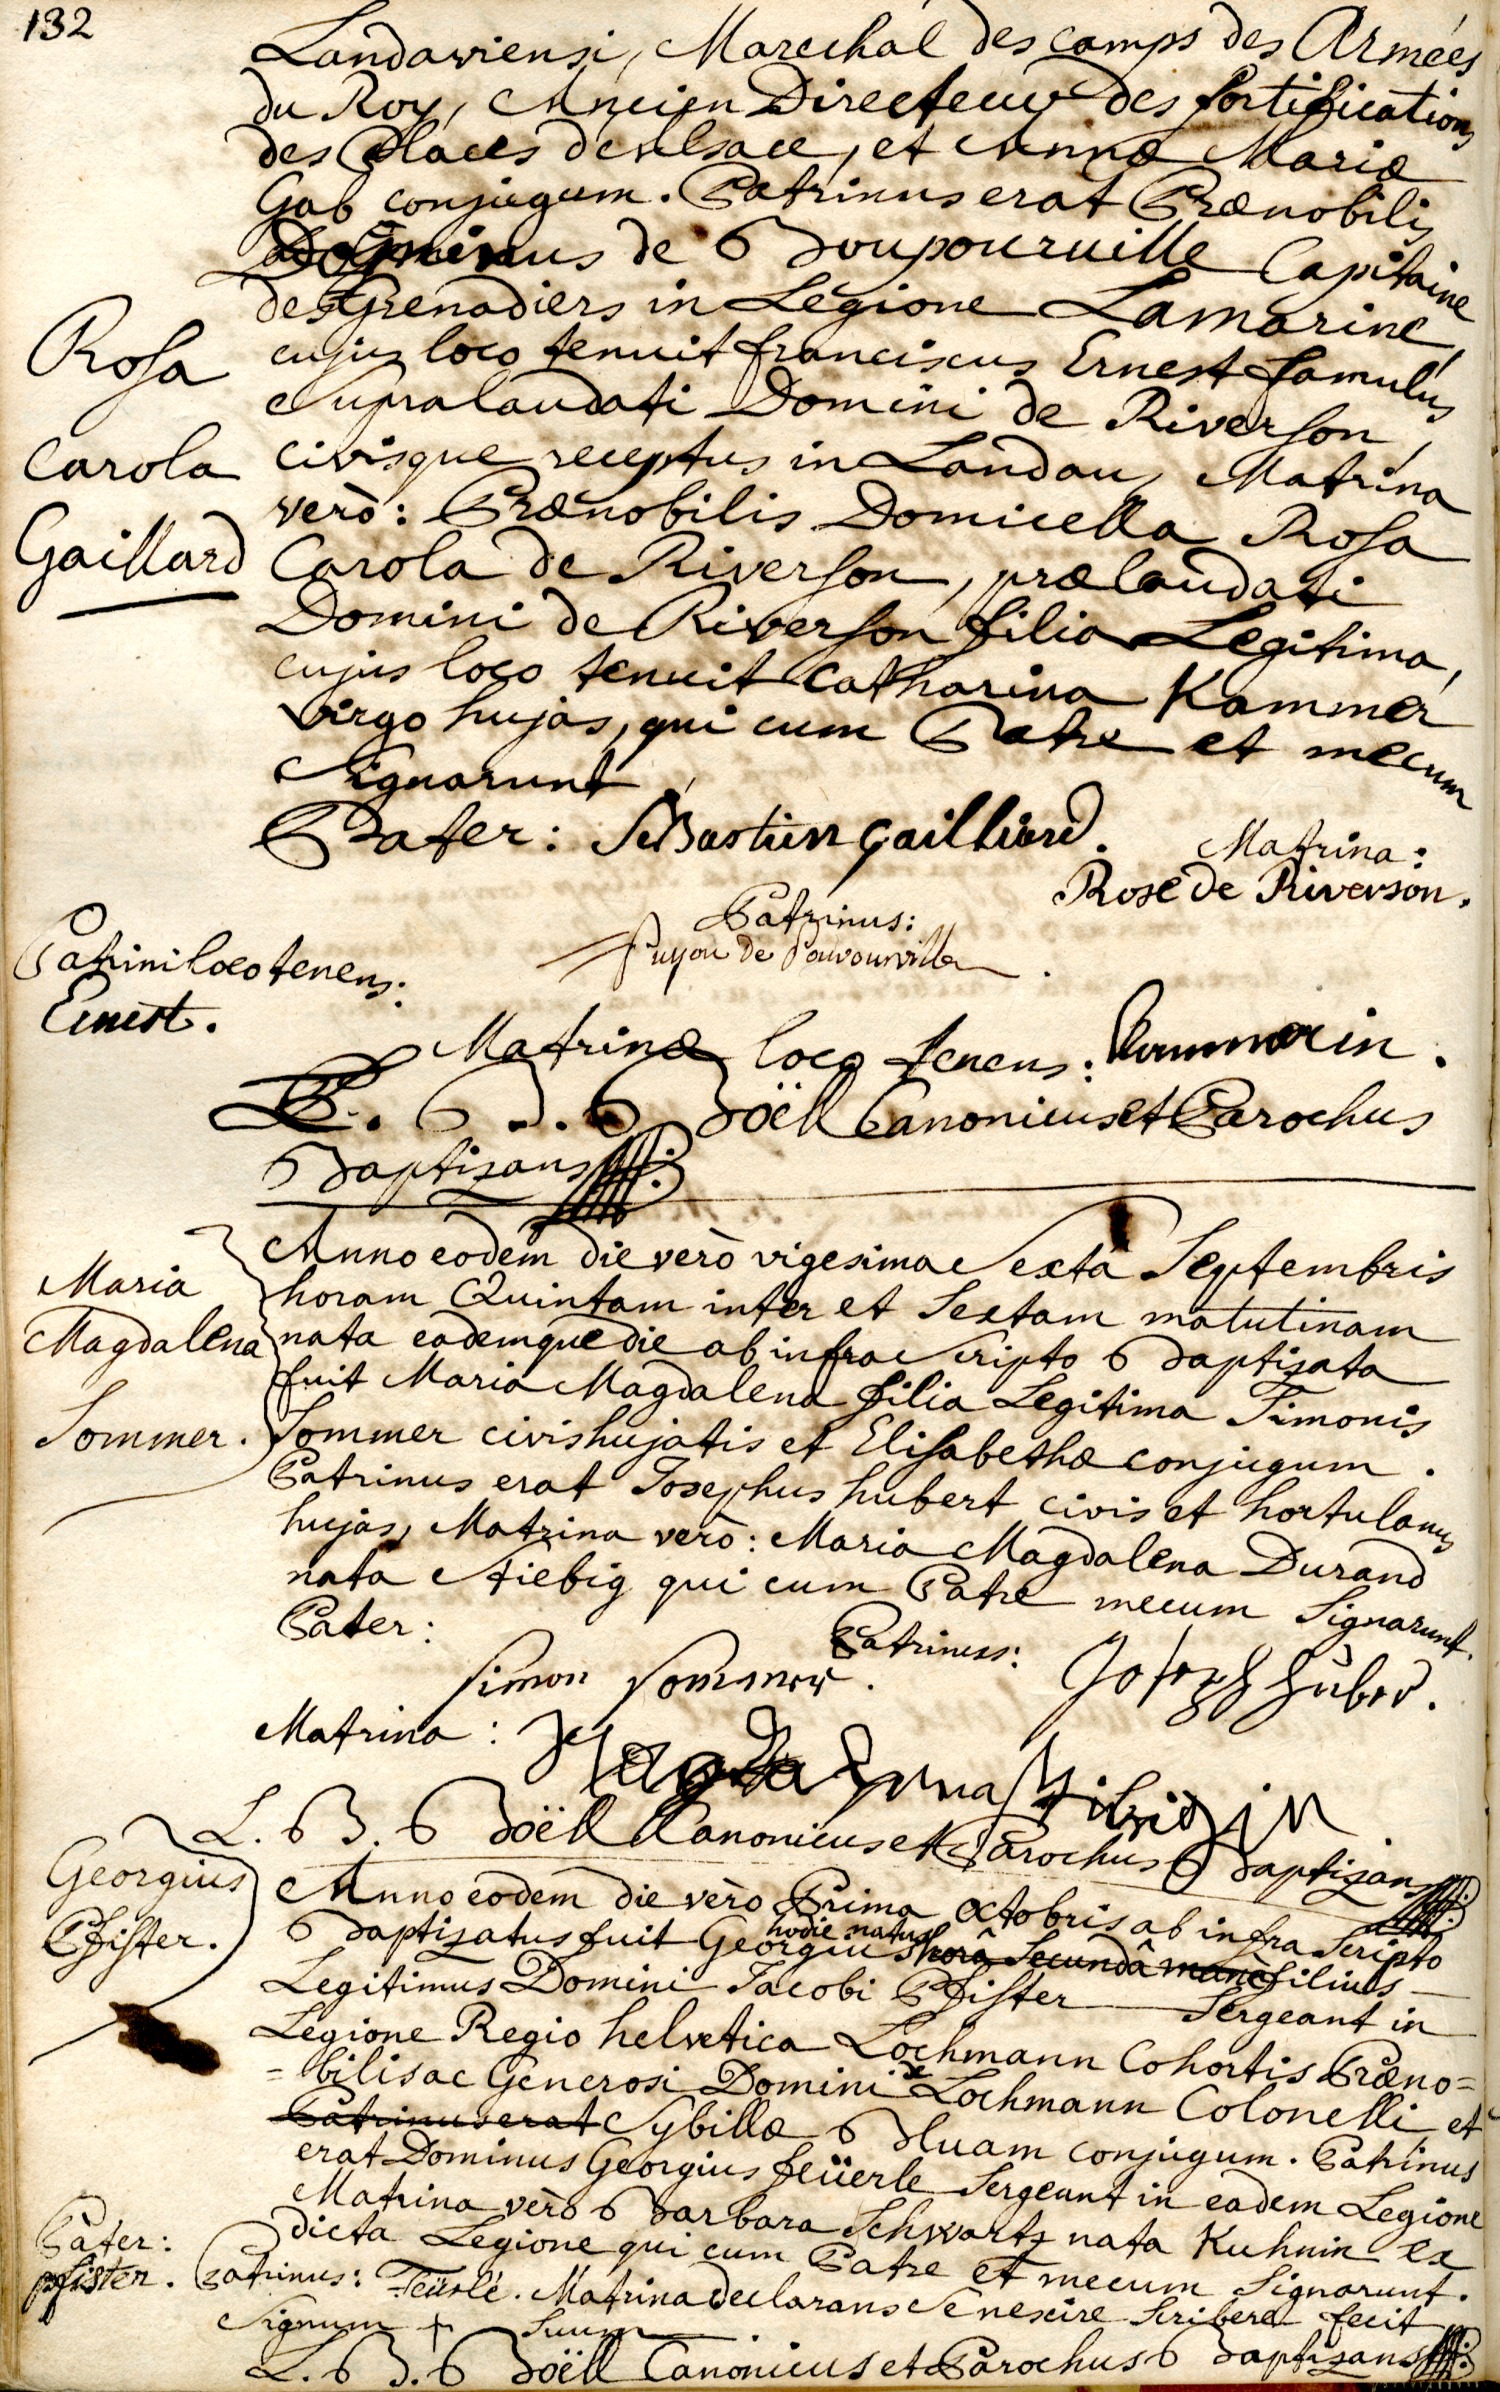 132
Landaviensi, Marechal des camps des Armées
du Roy, Ancien Directeur des fortifications
des Places d'Alsace, et Annæ Mariæ
Gab conjugum. Patrinus erat Prænobilis
Dominus de Boupourville Capitaine
des Grenadiers in Legione Lamarine,
cujus loco tenuit franciscus Ernest famulus
Supralaudati Domini de Riverson,
civisque receptus in Landau, Matrina
verò: Prænobilis Domicella Rosa
Carola de Riverson, prælaudati
Domini de Riverson filia Legitima,
cujus loco tenuit Catharina Kammer
virgo hujas, qui cum Patre et mecum
Signarunt
Rosa
Carola
Gaillard
Pater: Sebastien Gailliard.
Matrina:
Rose de Riverson.
Patrinus:
Puyou de Pouvourville
Patrini loco tenens:
Ernest.
Matrinæ loco tenens: Kammerin.
L. B. Böell Canonicus et Parochus
Baptizans
Maria
Magdalena
Sommer.
Anno eodem die verò vigesima Sexta Septembris
horam Quintam inter et Sextam matutinam
nata eademque die ab infra Scripto Baptizata
fuit Maria Magdalena filia Legitima Simonis
Sommer civis hujatis et Elisabethæ conjugum.
Patrinus erat Josephus hubert civis et hortulanus
hujas, Matrina verò: Maria Magdalena Durand
nata Stiebig qui cum Patre mecum Signarunt.
Pater:
Simon Sommer.
Patrinus: Joseph Huber.
Matrina: Magdalena
L. B. Böell Canonicus et Parochus Baptizans
Georgius
Pfister.
Anno eodem die verò Prima Octobris ab infra Scripto
hodie natus
Baptizatus fuit Georgius horâ Secundâ mane filius
Legitimus Domini Jacobi Pfister Sergeant in
Legione Regio helvetica Lochmann Cohortis Præno=
=bilis ac Generosi Domini de Lochmann Colonelli, et
Patrinus erat Sybillæ Bluam conjugum. Patrinus
erat Dominus Georgius feüerle Sergeant in eadem Legione
Matrina verò Barbara Schwartz nata Kuhnin ex
dicta Legione qui cum Patre et mecum Signarunt.
Pater:
pfister.
Patrinus: Feürlé. Matrina declarans Se nescire Scribere fecit
Signum + Suum
L. B. Böell Canonicus et Parochus Baptizans